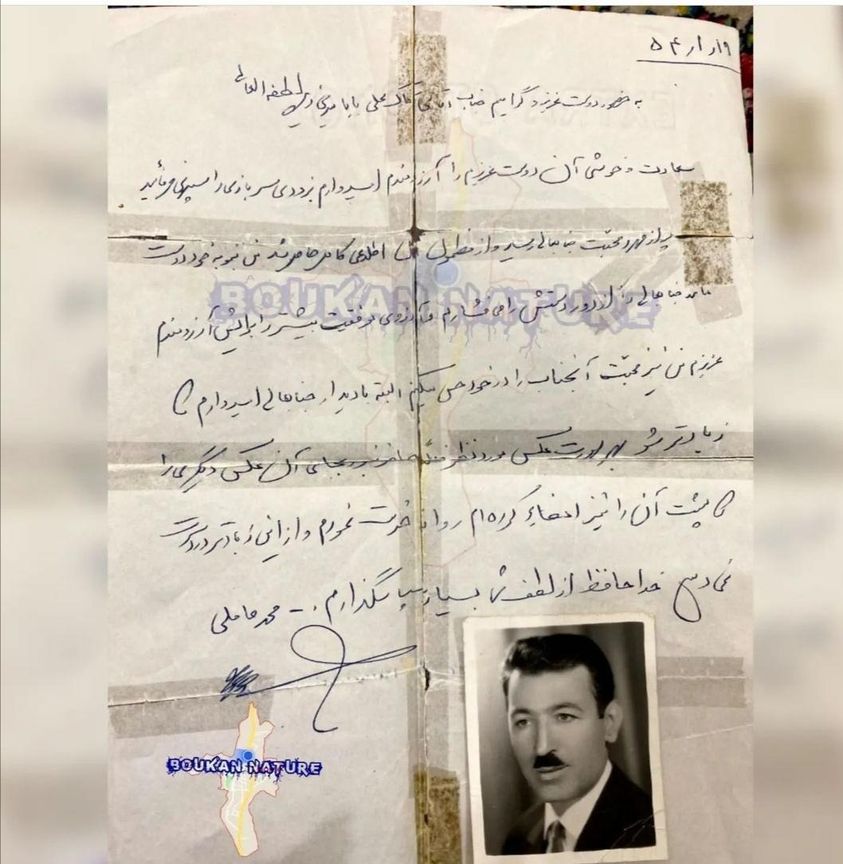 ۵۴ر۱ر۱۹
به حضور دوست عزیز و گرامیم جناب آقای کاک علی بابا میری
سعادت و خوشی آن دوست عزیز را آرزومندم امیدوارم بزودی سربازی را سپری فرمائید
پر از مهر و محبت جنابعالی رسید و از اطلاعی کامل حاصل شد من بنوبه خود دست
جنابعالی را از دور دستش را می فشارم و آرزوی موفقیت بیشتر را برایش آرزومندم
عزیزم من نیز محبت آنجناب را در خود حس میکنم البته با دیدار جنابعالی امیدوارم که
زیادتر شود بهر صورت عکس مورد نظر حاضر نبود بجای آن عکس دیگری را
که پشت آن را نیز امضاء کرده ام روانه خدمت نمودم و از این زیادتر دردسر
نمی دهم خدا حافظ از لطف شما بسیار سپاسگذارم. محمد ماملی
BOUKAN NATURE
BOUKAN NATURE